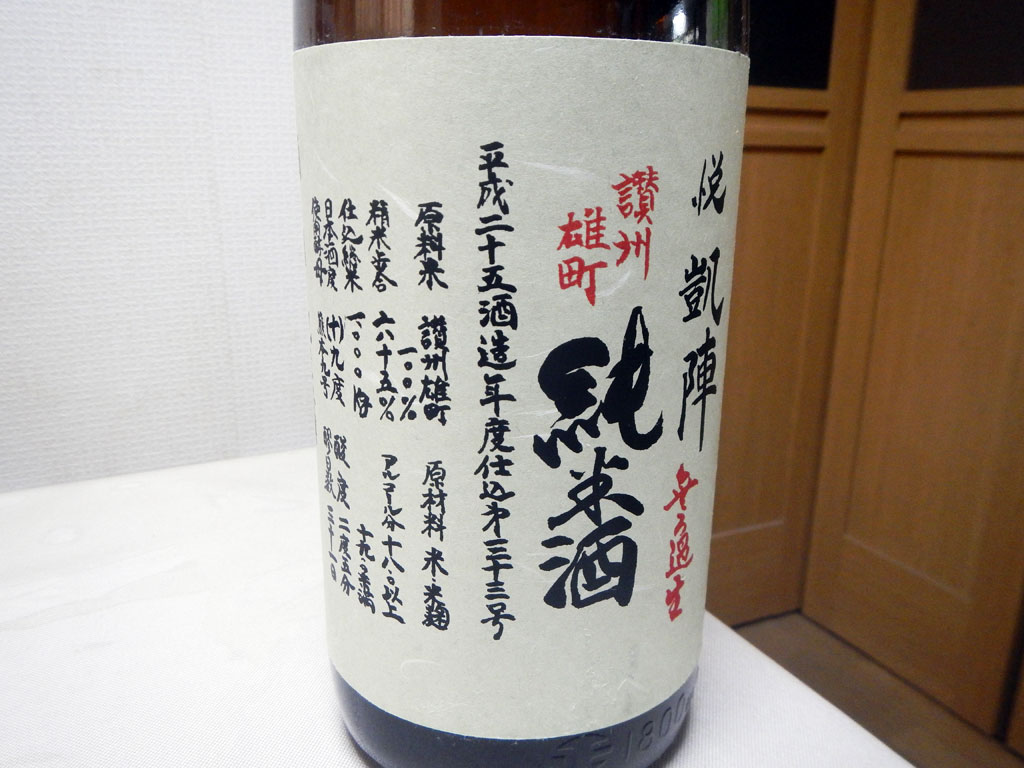 悦 凱陣
無ろ過生
讃州
雄町
純米酒
平成二十五酒造年度仕込第三十三号
原料米 讃州雄町
一〇〇%
原材料 米・米麹
精米歩合 六十五%
アルコール分 十八.〇以上
十九.〇未満
仕込総米 一〇〇〇
日本酒度 (十)九度
酸度 二度五分
使用酵母 熊本九号
醪日数 三十一日
1800